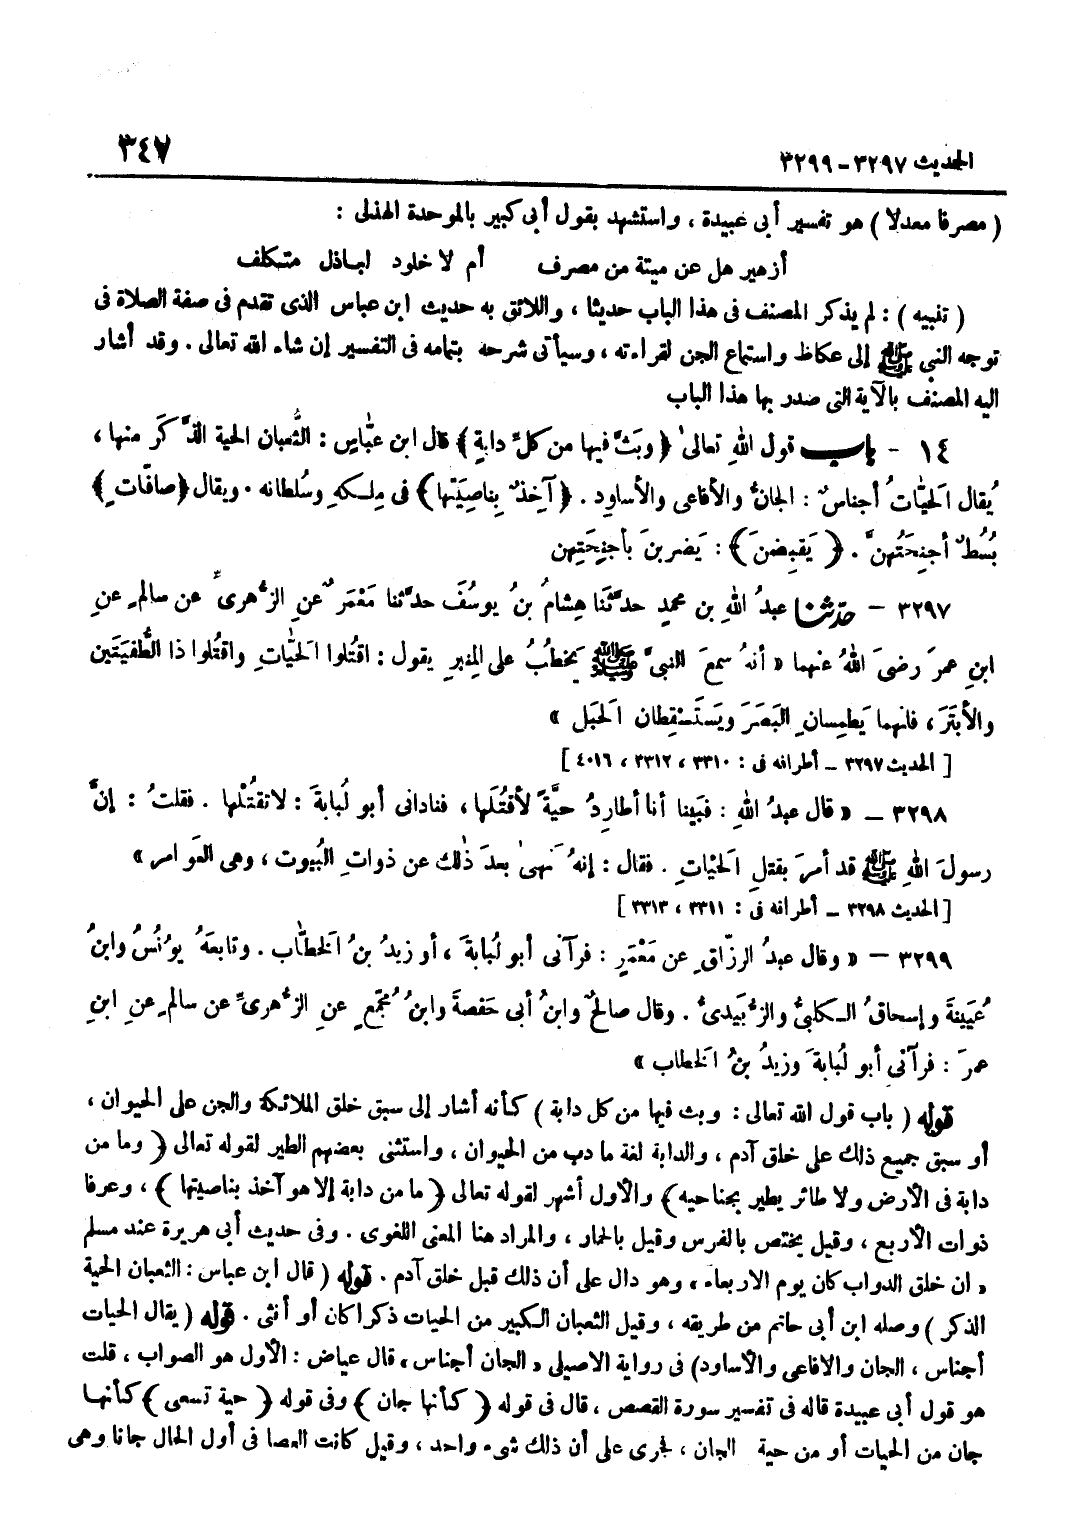 الحديث ٣٢٩٧ - ٣٢٩٩
٣٤٧
( مصرفا معدلا ) هو تفسير أبى عبيدة ، واستشهد بقول أبى كبير بالموحدة الهذلى :
أزهير هل عن ميتة من مصرف أم لا خلود لباذل متكلف
( تنبيه ) : لم يذكر المصنف فى هذا الباب حديثا ، واللائق به حديث ابن عباس الذى تقدم فى صفة الصلاة فى
توجه النبى ﷺ إلى عكاظ واستماع الجن لقراءته ، وسيأتى شرحه بتمامه فى التفسير إن شاء الله تعالى . وقد أشار
اليه المصنف بالآية التى صدر بها هذا الباب
١٤ - باب قول اللهِ تعالىٰ ﴿ وبَثَّ فيها من كلِّ دابةٍ ﴾ قال ابن عبّاسٍ : الثُّعبان الحية الذَّكَر منها ،
يُقال الَحيّاتُ أجناسٌ : الجانُّ والأفاعى والأساوِد . ﴿ آخِذٌ بِناصِيَتها ﴾ فى مِلـكهِ وسُلطانه . ويقال ﴿ صافّاتٍ ﴾
بُسُطٌ أجنِحَتُهنَّ . ﴿ يَقبِضنَ ﴾ : يَضربنَ بأجنِحَتِهن
٣٢٩٧ - حدّثنا عبدُ اللهِ بن محمدٍ حدَّثَنا هِشامُ بنُ يوسُفَ حدَّثنا مَعْمَرٌ عنِ الزُّهرىِّ عن سالمٍ عنِ
ابنِ عمرَ رضىَ اللهُ عنهما « أنهُ سمعَ النبىَّ ﷺ يَخطبُ على المِنبرِ يقول : اقتُلوا الَحيّاتِ واقتُلوا ذا الطُّفيَتَين
والأبتَرَ ، فانهما يَطمِسانِ البَصَرَ ويَستَسْقِطان الَحبَل »
[ الحديث ٣٢٩٧ - أطرافه فى : ٣٣١٠ ، ٣٣١٢ ، ٤٠١٦ ]
٣٢٩٨ - « قال عبدُ اللهِ : فبَينا أنا أطارِدُ حيَّةً لأقتُلَها ، فنادانى أبو لُبابةَ : لا تقتُلْها . فقلتُ : إنَّ
رسولَ اللهِ ﷺ قد أمرَ بقتلِ الَحيّاتِ . فقال : إنهُ نَهىٰ بعدَ ذٰلك عن ذواتِ البُيوت ، وهى العَوامر »
[ الحديث ٣٢٩٨ - أطرافه فى : ٣٣١١ ، ٣٣١٣ ]
٣٢٩٩ - « وقال عبدُ الرزّاقِ عن مَعْمَرٍ : فرآنى أبو لُبابةَ ، أو زيدُ بنُ الخطّاب . وتابعَهُ يونُسُ وابنُ
عُيَينةَ وإسحاقُ الـكلبىُّ والزُّبَيدىُّ . وقال صالحٌ وابنُ أبى حَفصةَ وابنُ مُجمِّعٍ عنِ الزُّهرىِّ عن سالمٍ عنِ ابنِ
عمرَ : فرآنى أبو لُبابةَ وزيدُ بنُ الخطاب »
قوله ( باب قول الله تعالى : وبث فيها من كل دابة ) كأنه أشار إلى سبق خلق الملائكة والجن على الحيوان ،
أو سبق جميع ذلك على خلق آدم ، والدابة لغة ما دب من الحيوان ، واستثنى بعضهم الطير لقوله تعالى ﴿ وما من
دابة فى الأرض ولا طائر يطير بجناحيه ﴾ والأول أشهر لقوله تعالى ﴿ ما من دابة إلا هو آخذ بناصيتها ﴾ ، وعرفا
ذوات الأربع ، وقيل يختص بالفرس وقيل بالحمار ، والمراد هنا المعنى اللغوى . وفى حديث أبى هريرة عند مسلم
« ان خلق الدواب كان يوم الاربعاء ، وهو دال على أن ذلك قبل خلق آدم . قوله ( قال ابن عباس : الثعبان الحية
الذكر ) وصله ابن أبى حاتم من طريقه ، وقيل الثعبان الكبير من الحيات ذكرا كان أو أنثى . قوله ( يقال الحيات
أجناس ، الجان والافاعى والأساود) فى رواية الاصيلى « الجان أجناس » قال عياض : الأول هو الصواب ، قلت
هو قول أبى عبيدة قاله فى تفسير سورة القصص ، قال فى قوله ﴿ كأنها جان ﴾ وفى قوله ﴿ حية تسعى ﴾ كأنها
جان من الحيات أو من حية الجان ، فجرى على أن ذلك شىء واحد ، وقيل كانت العصا فى أول الحال جانا وهى